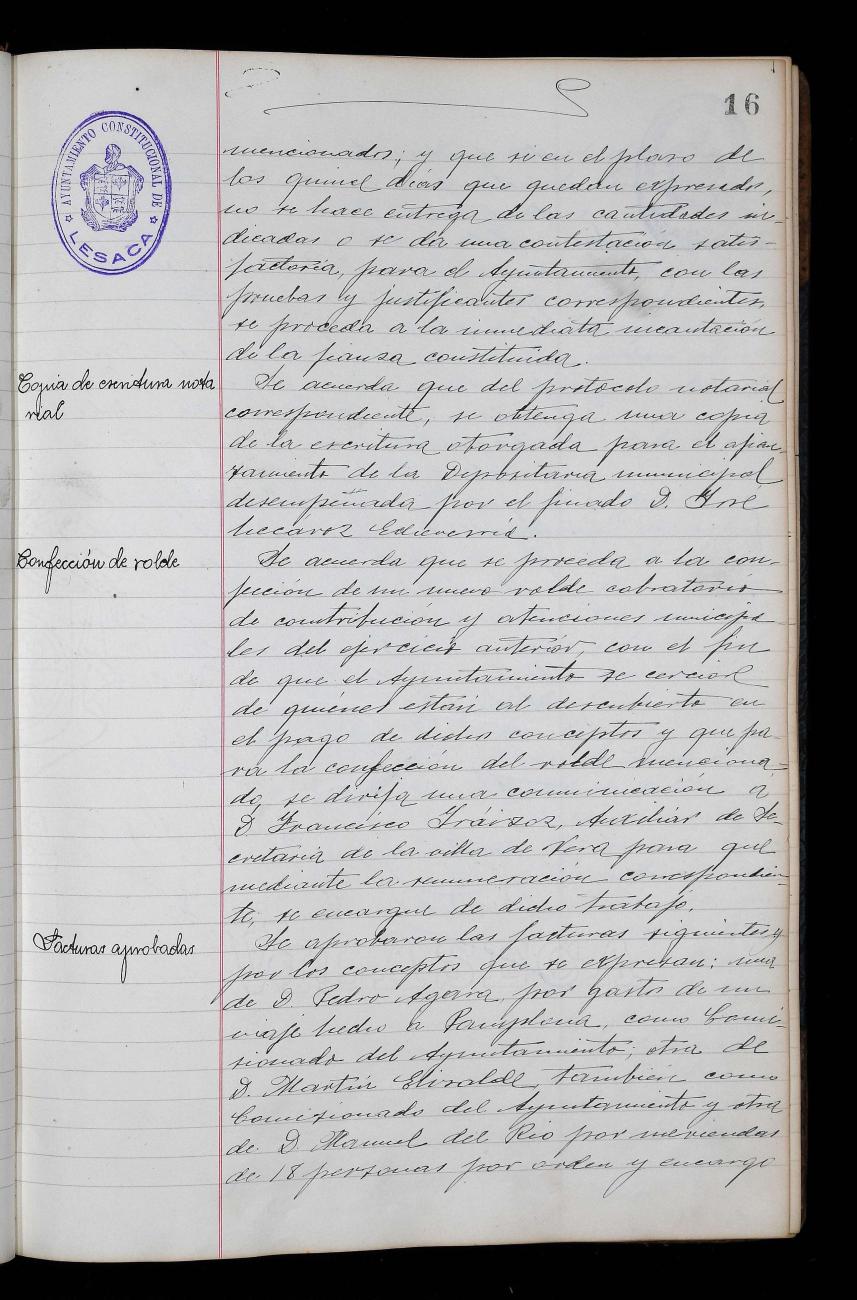 16
AYUNTAMIENTO CONSTITUCIONAL DE
LESACA
mencionados; y que si en el plaso de
los quince días que quedan expresados,
no se hace entrega de las cantidades in-
dicadas o se da una contestación satis-
factoria, para el Ayuntamiento, con las
pruebas y justificantes correspondientes,
se proceda a la inmediata incautación
de la fianza constituida.
Copia de escritura nota
rial
Se acuerda que del protocolo notarial
correspondiente, se obtenga una copia
de la escritura otorgada para el afian-
zamiento de la Depositaria municipal
desempeñada por el finado D. José
Echeverría.
Confección de rolde
Se acuerda que se proceda a la con-
fección de un nuevo rolde cobratorio
de contribución y atenciones municipa
les del ejercicio anterior, con el fin
de que el Ayuntamiento se cerciore
de quiénes están al descubierto en
el pago de dichos conceptos y que pa-
ra la confección del rolde menciona-
do, se dirija una comunicación á
D. Francisco Iráizoz, Auxiliar de Se-
cretaria de la villa de Vera para que
mediante la remuneración correspondien-
te, se encargue de dicho trabajo.
Facturas aprobadas
Se aprobaron las facturas siguientes y
por los conceptos que se expresan: una
de D. Pedro Agerra, por gastos de un
viaje hecho a Pamplona, como Comi-
sionado del Ayuntamiento; otra de
D. Martín Elizalde, también como
Comisionado del Ayuntamiento y otra
de D. Manuel del Rio por meriendas
de 18 personas por orden y encargo